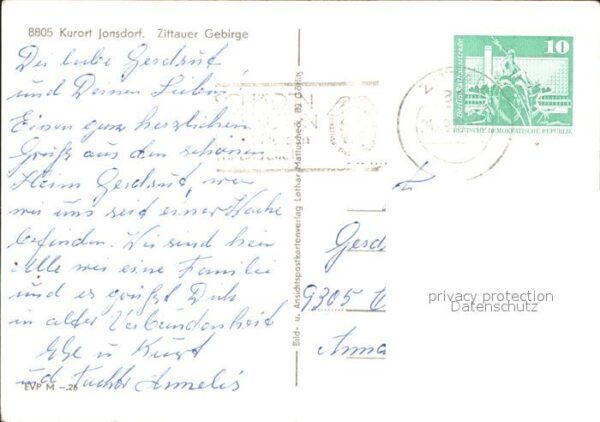 8805 Kurort Jonsdorf. Zittauer Gebirge
Dir liebe Gerdraut,
und Deinen Lieben
Einen ganz herzlichen
Gruß aus den schönen
Heim Gerdraut, wo
wir uns seit einer Woche
befinden. Wir sind hier
Alle wie eine Familie
und es grüßt Dich
in alter Verbundenheit
u Kurt
und Tochter Annelis
EVP M –.25
Bild- u. Ansichtspostkartenverlag Lothar Mattuscheck, 89 Görlitz
10
Berlin, Rathausstraße
DEUTSCHE DEMOKRATISCHE REPUBLIK
9305
privacy protection
Datenschutz